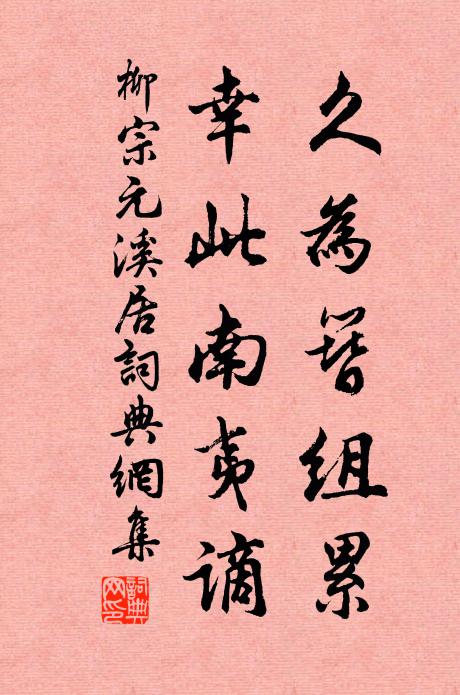 久為簪組累
幸此南夷謫
柳宗元溪居詞典網集
詞典網印